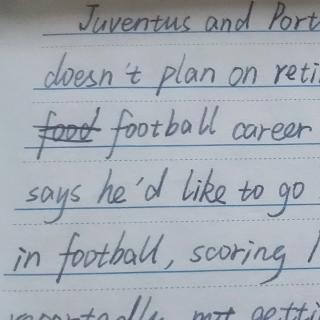 Juventus and Port
doesn't plan on reti
food football career
says he'd like to go
in football, scoring